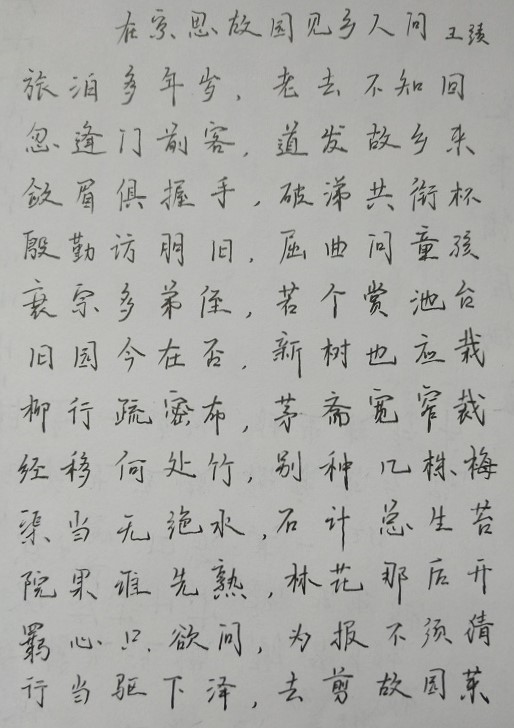 在京思故园见乡人问 王绩
旅泊多年岁，老去不知回
忽逢门前客，道发故乡来
敛眉俱握手，破涕共衔杯
殷勤访朋旧，屈曲问童孩
衰宗多弟侄，若个赏池台
旧园今在否，新树也应栽
柳行疏密布，茅斋宽窄裁
经移何处竹，别种几株梅
渠当无绝水，石计总生苔
院果谁先熟，林花那后开
羁心只欲问，为报不须猜
行当驱下泽，去剪故园莱